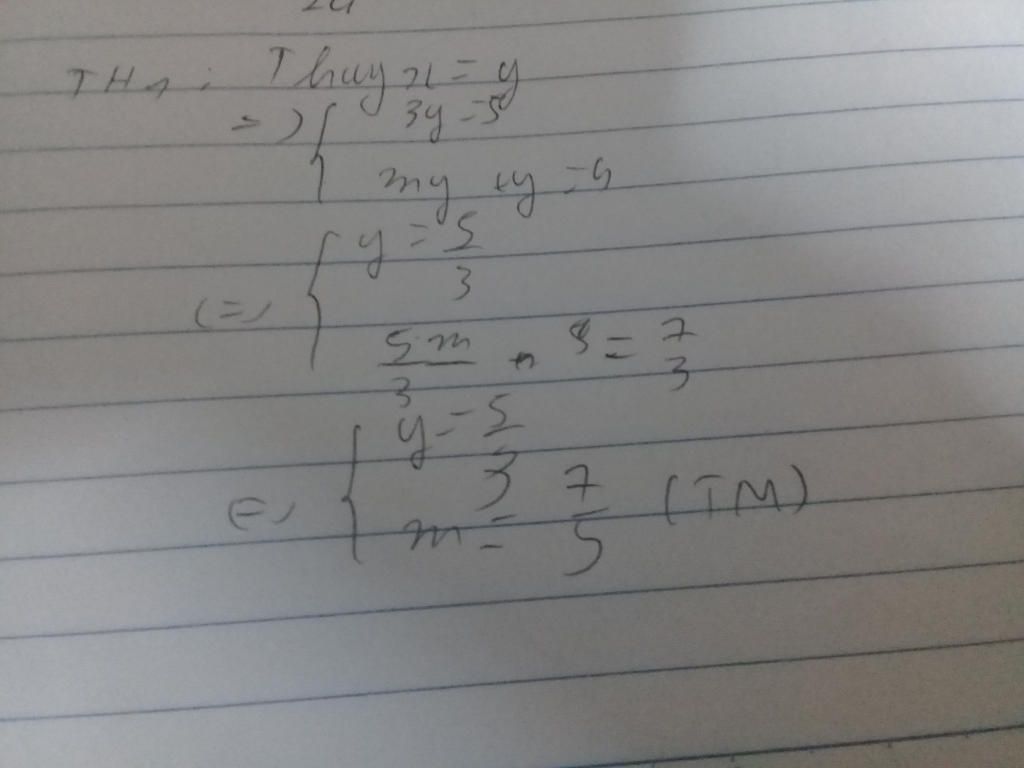 TH1: Thay x = y
=> { 3y = 5
my + y = 4
<=> { y = 5/3
5m/3 = 7/3
<=> { y = 5/3
m = 7/5 (TM)